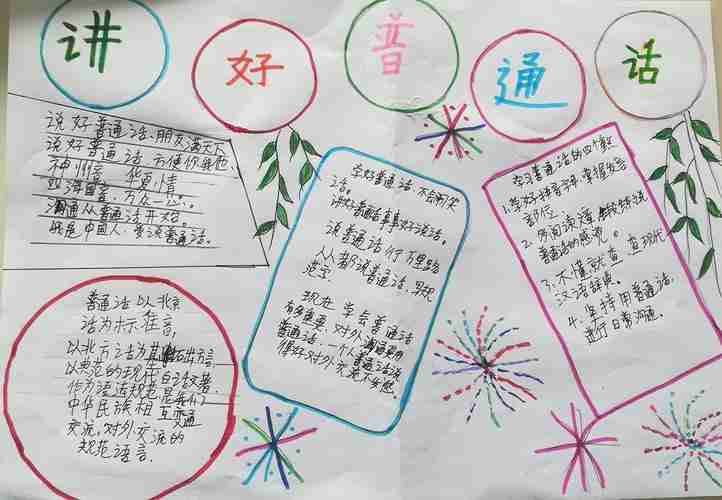 讲好普通话
说好普通话、朋友满天下
说好普通话 方便你我他
神州音 华夏情
四海同音、万众一心。
沟通从普通话开始。
我是中国人、普说普通话。
普通话以北京
话为标准音，
以北方话为基础方言
以典范的现代白话文著
作为语法规范是我们
中华民族相互交通
交流，对外交流的
规范语言.
学好普通话，不会闹笑
话。
讲好普通话事事好说话。
说普通话行万里路
人人都说普通话，写规
范字
现在 学会普通话
有多重要，对外
普通话，一个人普通话说
得好对外交流
学习普通话的四个
1.学好拼音字母，掌握发音
部位
2. 多朗读
普通话的感觉。
3、不懂就查 查现代
汉语辞典。
4. 坚持用普通话，
进行日常沟通。